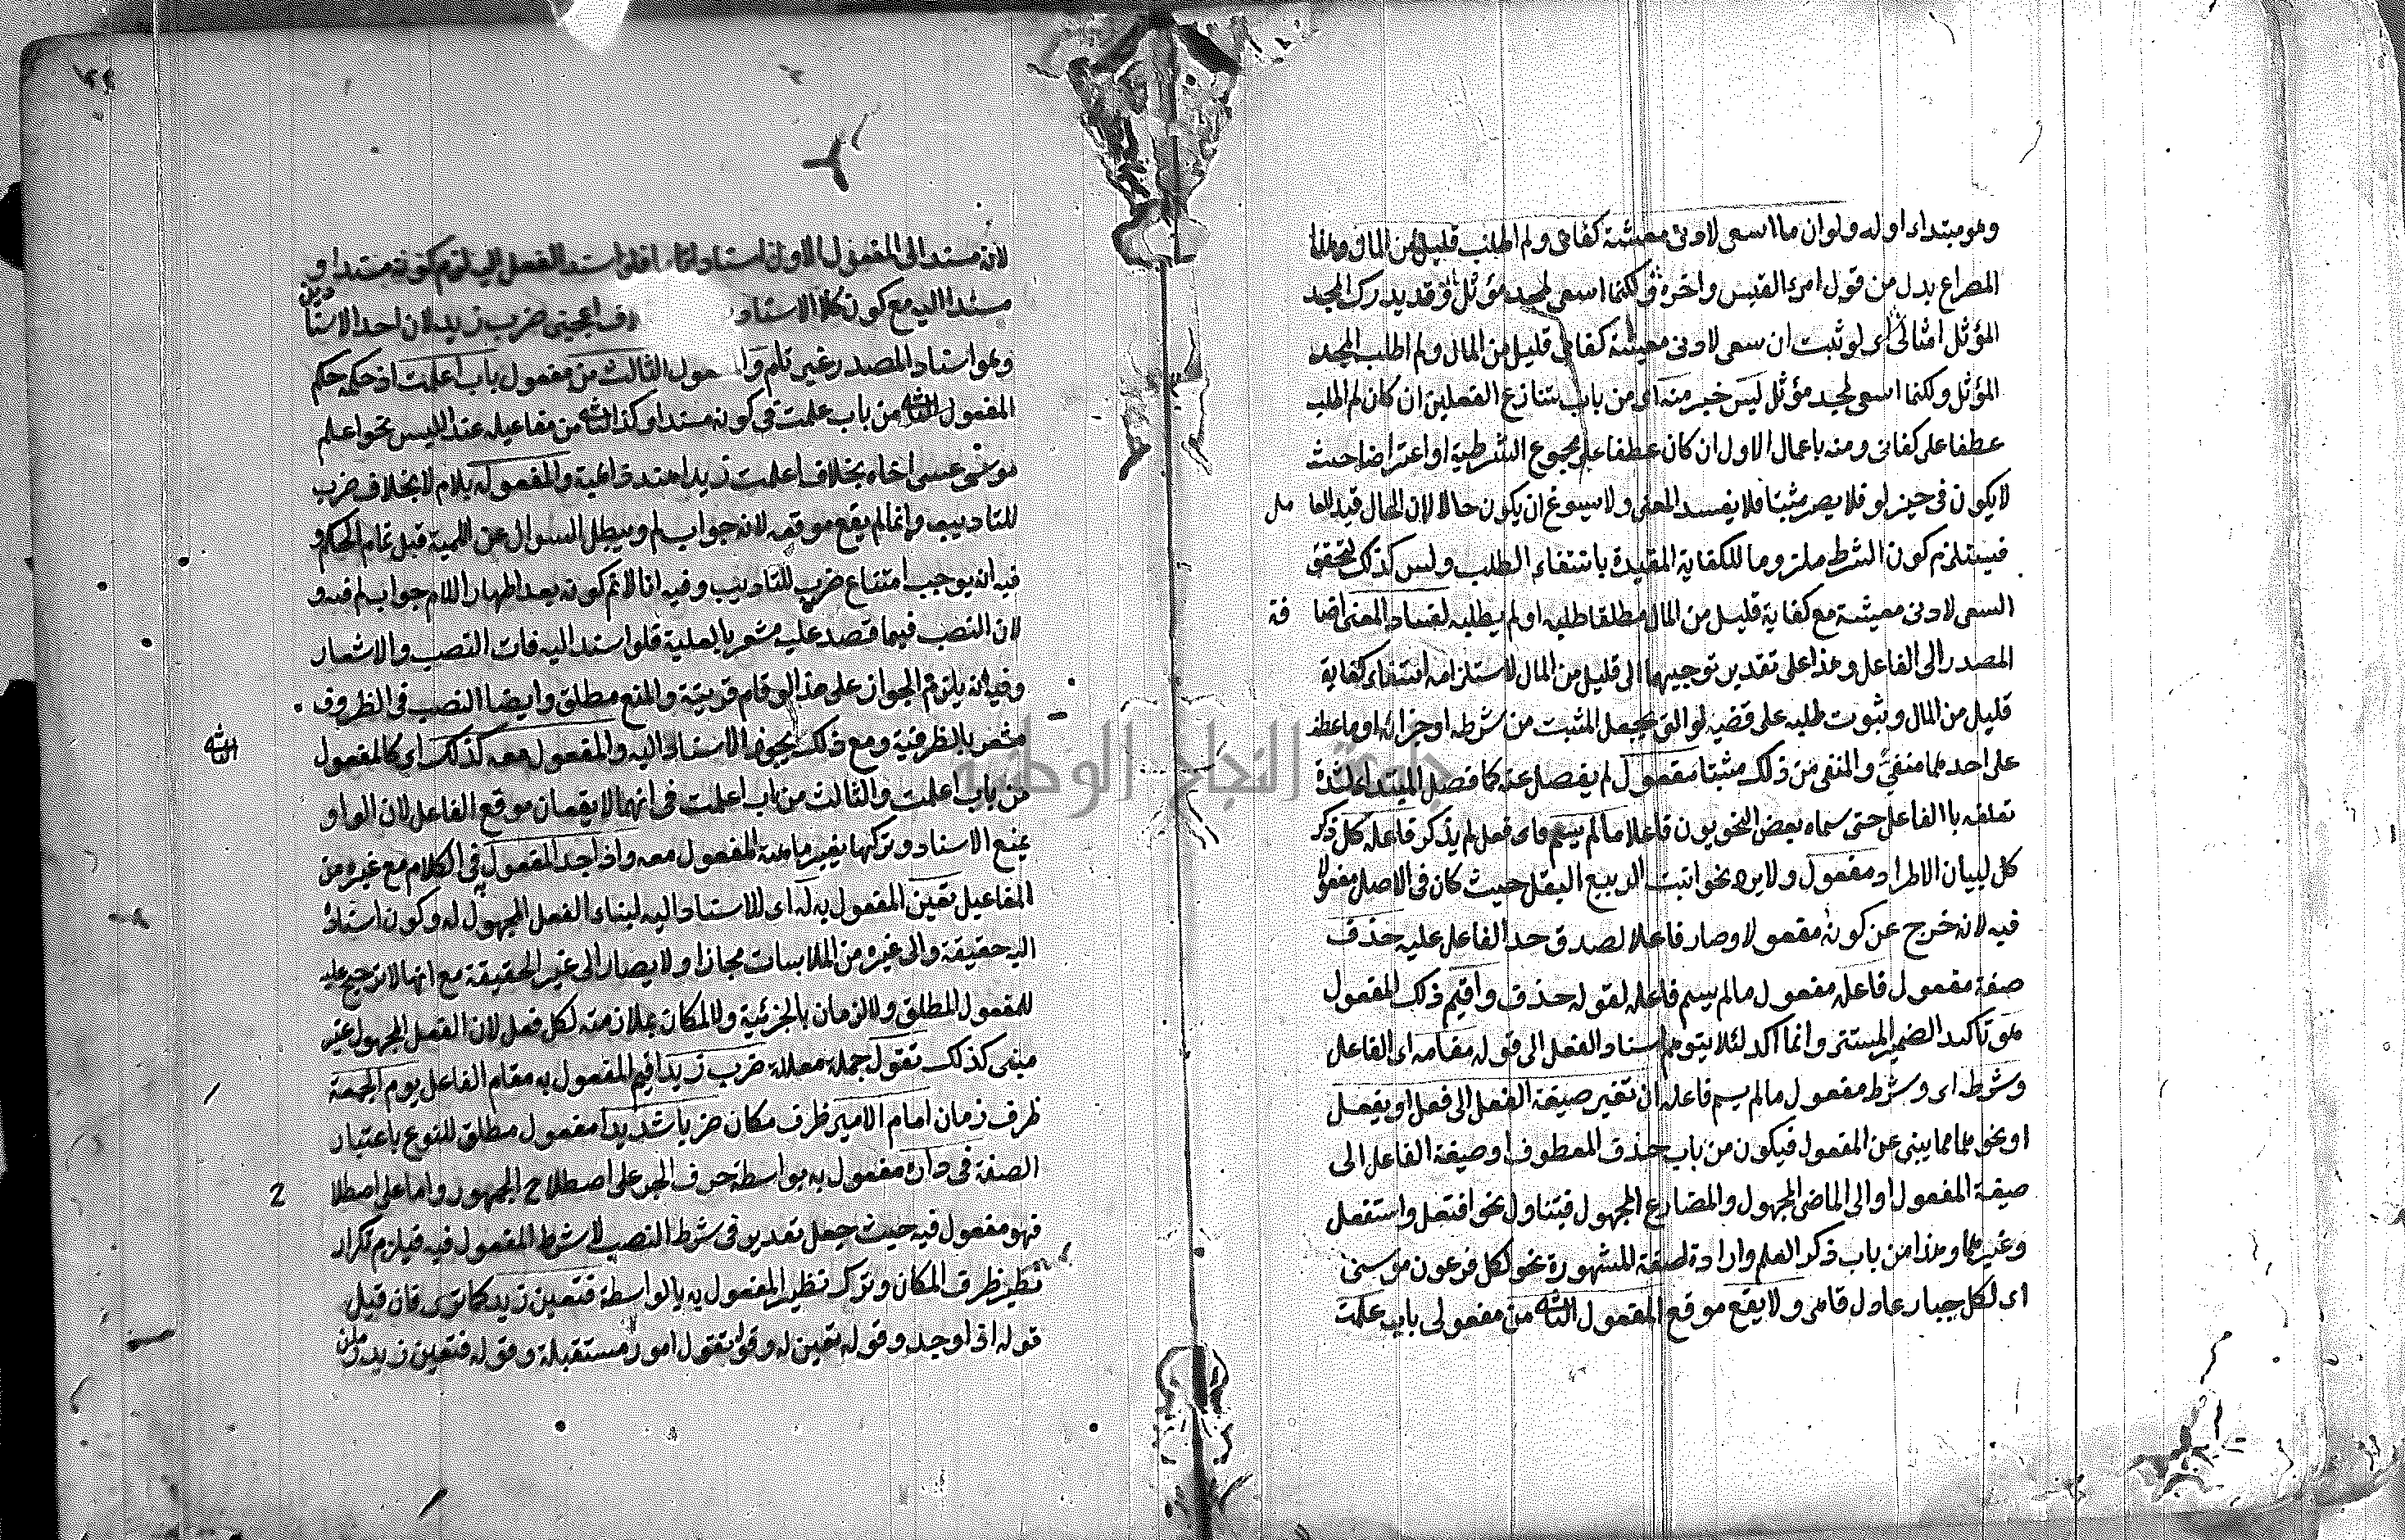 وهو مبتداء اوله ولو ان ما اسعى لادنى معيشة كفانى ولم اطلب قليل من المال وهذا
المصراع بدل من قول امرء القيس واخره ولكنما اسعى لمجد مؤثل وقد يدرك المجد
المؤثل امثالى اى لو ثبت ان سعى لادنى معيشة كفانى قليل من المال ولم اطلب المجد
المؤثل ولكنما اسعى لمجد مؤثل ليس خبر منه اى من باب تنازع الفعلين ان كان لم اطلب
عطفا على كفانى ومنه باعمال الاول ان كان عطفا على مجموع الشرطية او اعتراضا حيث
لا يكون فى حيز لو فلا يصير مثبتا فلا يفسد المعنى ولا يسوغ ان يكون حالا لان الحال قيد للعا مل
فيستلزم كون الشرط ملزوما للكفاية المقيدة بانتفاء الطلب وليس كذلك لتحقق
السعى لادنى معيشة مع كفاية قليل من المال مطلقا طلبه او لم يطلبه لفساد المعنى اضا فة
المصدر الى الفاعل وهذا على تقدير توجيهها الى قليل من المال لاستلزامه انتفاء كفاية
قليل من المال وثبوت طلبه على قضية لو التى تجعل المثبت من شرطه او جزائه او ما عطف
على احدهما منفيا والمنفى من ذلك مثبتا مفعول لم يفصل عنه كما فصل المبتداء لشدة
تعلقه باالفاعل حتى سماه بعض النحويون فاعلا ما لم يسم فاى فعل لم يذكر فاعله كل ذكر
كل لبيان الاطراد مفعول ولا يرد نحو انبت الربيع البقل حيث كان فى الاصل مفعولا
فيه لانه خرج عن كونه مفعولا وصار فاعلا لصدق حد الفاعل عليه حذف
صفة مفعول فاعله مفعول ما لم يسم فاعله لقوله حذف واقيم ذلك المفعول
هو تاكيد الضمير المستتر وانما اكد لئلا يتوهم اسناد الفعل الى قوله مقامه اى الفاعل
وشرطه اى وشرط مفعول ما لم يسم فاعله ان تغير صيغة الفعل الى فعل او يفعل
او نحوهما مما يبنى عن المفعول فيكون من باب حذف المعطوف او صيغة الفاعل الى
صيغة المفعول او الى الماضى المجهول والمضارع المجهول فيتناول نحو افتعل واستفعل
وغيرهما وهذا من باب ذكر العلم وارادة لصفة المشهورة نحو لكل فرعون موسى
اى لكل جبار عادل قاهر ولا يقع موقع المفعول الثانى من مفعولى باب علمت
لانه مسند الى المفعول الاول اسنادا تاما فلو اسند الفعل اليه لزم كونه مسندا و
مسندا اليه مع كون كلا الاسناد دين اعجبنى ضرب زيد لان احد الاسنا
وهو اسناد المصدر غير تام ول الثالث من مفعول باب اعلمت اذ حكمه حكم
المفعول الثانى من باب علمت فى كونه مسندا وكذا الثانى من مفاعيله عند اللبس نحو اعلم
موسى عيسى اخاه بخلاف اعلمت زيدا هندا والمفعول له بلام لا بخلاف ضرب
للتاديب وانما لم يقع موقعه لانه جواب لم ويبطل السوال عن اللمية قبل تمام الحكم و
فيه انه يوجب امتناع ضرب للتاديب وفيه انا لا نم كونه بعد اظهار اللام جواب لم فيه و
لان النصب فيما قصد عليه مشعر بالعلية فلو اسند اليه فات النصب والاشعار
وفيه انه يلزم الجواز على هذا لو قام قرينة والمنع مطلق وايضا النصب فى الظروف
مشعر بالظرفية ومع ذلك يجوز الاسناد اليه والمفعول معه كذلك اى كالمفعول الثانى
من باب اعلمت والثالث من باب اعلمت فى انهما لا يقعان موقع الفاعل لان الواو
يمنع الاسناد وتركها يغير ماهية المفعول معه واذا وجد المفعول به فى الكلام مع غيره من
المفاعيل تعين المفعول به له اى للاسناد اليه لبناء الفعل المجهول له وكون اسناده
اليه حقيقة والى غيره من الملابسات مجازا ولا يصار الى غير الحقيقة مع انها لا ترجيح عليه
للمفعول المطلق ولا الزمان بالجزئية ولا المكان بملازمته لكل فعل لان الفعل المجهول غير
مبنى كذلك تقول جملة معللة ضرب زيد اقيم المفعول به مقام الفاعل يوم الجمعة
ظرف زمان امام الامير ظرف مكان ضربا شديدا مفعول مطلق للنوع باعتبار
الصفة فى داره مفعول به بواسطة حرف الجر على اصطلاح الجمهور واما على اصطلا ح
فهو مفعول فيه حيث جعل تقدير فى شرط النصب لا شرط المفعول فيه فيلزم تكرار
نظير ظرف المكان وترك نظير المفعول به بالواسطة فتعين زيد كما ترى فان قيل
قوله اذ لوجد وقوله تعين له وقوله تقول امور مستقبلة وقوله فتعين زيد